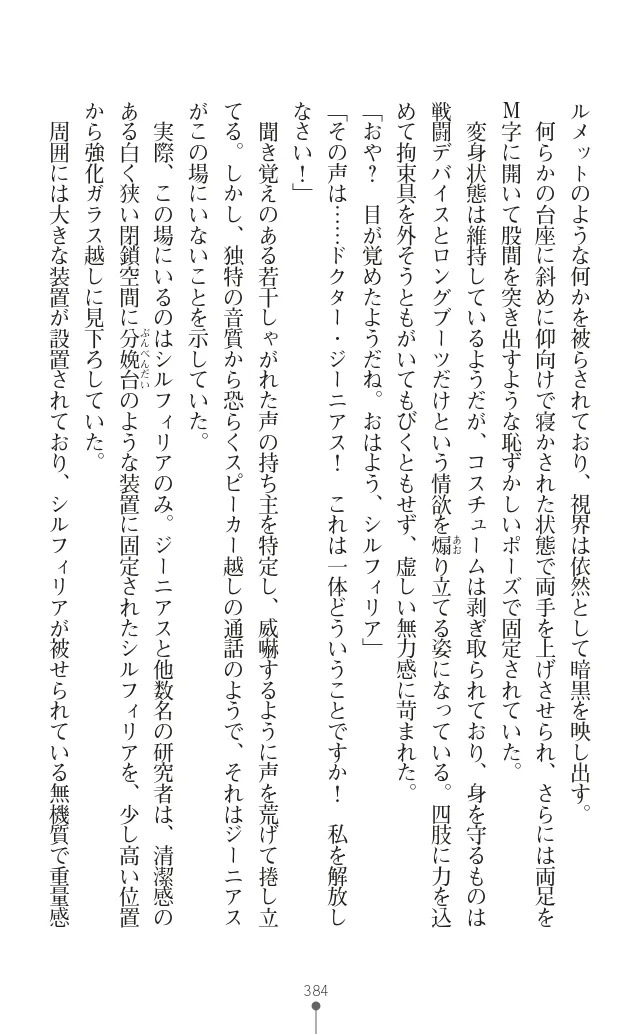 ルメットのような何かを被らされており、視界は依然として暗黒を映し出す。
　何らかの台座に斜めに仰向けで寝かされた状態で両手を上げさせられ、さらには両足を
M字に開いて股間を突き出すような恥ずかしいポーズで固定されていた。
　変身状態は維持しているようだが、コスチュームは剥ぎ取られており、身を守るものは
戦闘デバイスとロングブーツだけという情欲を煽り立てる姿になっている。四肢に力を込
めて拘束具を外そうともがいてもびくともせず、虚しい無力感に苛まれた。
「おや？　目が覚めたようだね。おはよう、シルフィリア」
「その声は……ドクター・ジーニアス！　これは一体どういうことですか！　私を解放し
なさい！」
　聞き覚えのある若干しゃがれた声の持ち主を特定し、威嚇するように声を荒げて捲し立
てる。しかし、独特の音質から恐らくスピーカー越しの通話のようで、それはジーニアス
がこの場にいないことを示していた。
　実際、この場にいるのはシルフィリアのみ。ジーニアスと他数名の研究者は、清潔感の
ある白く狭い閉鎖空間に分娩台のような装置に固定されたシルフィリアを、少し高い位置
から強化ガラス越しに見下ろしていた。
　周囲には大きな装置が設置されており、シルフィリアが被せられている無機質で重量感
あお
ぶんべんだい
384